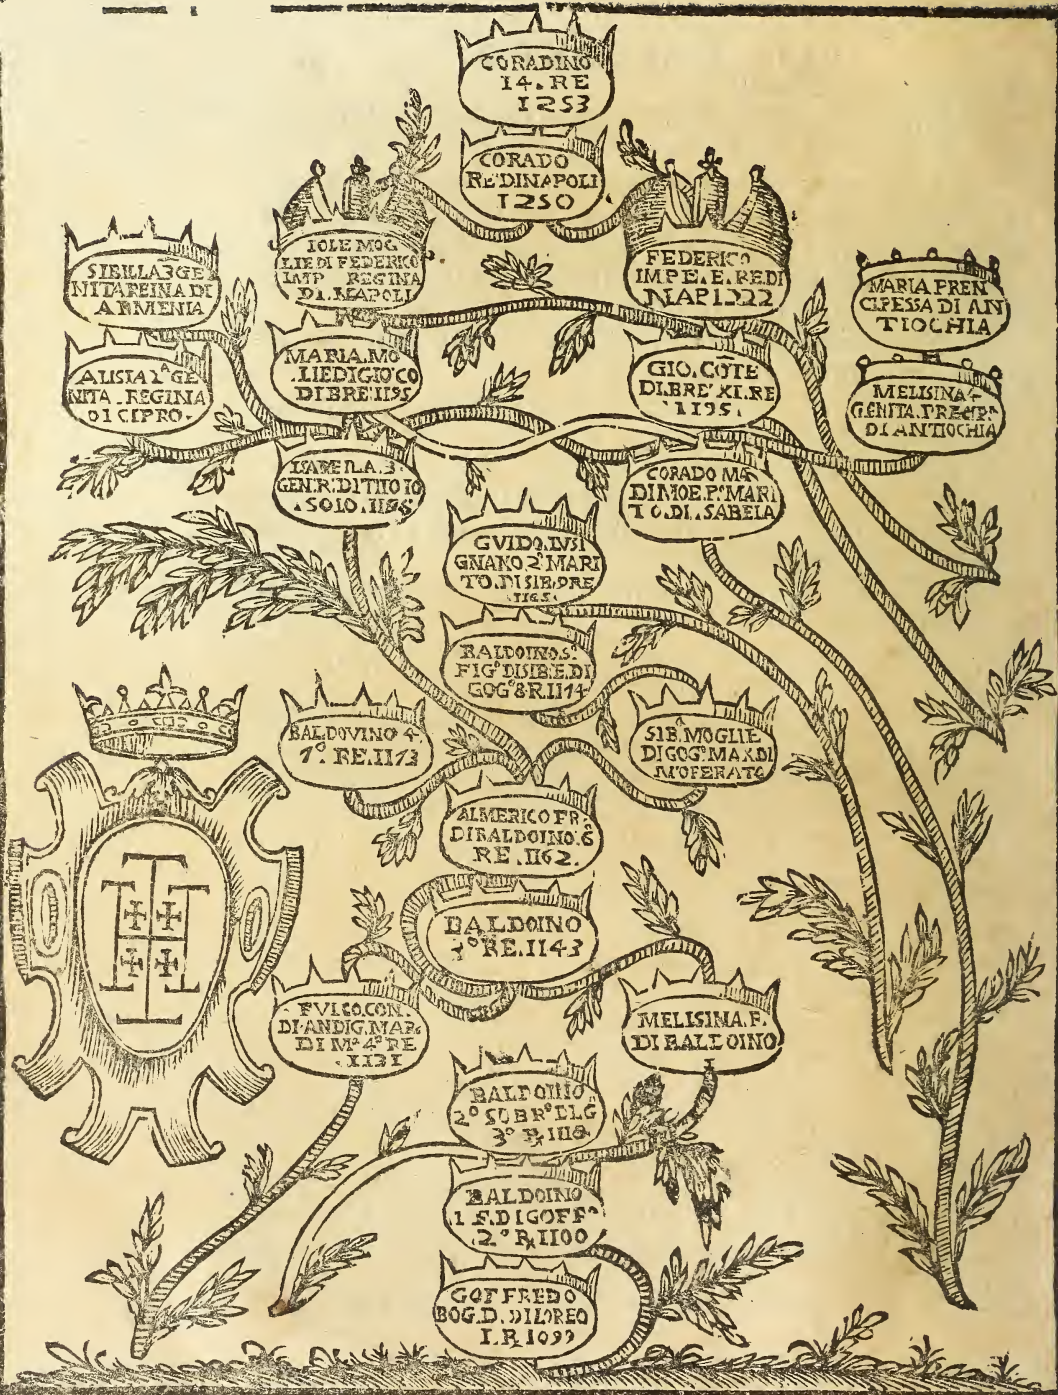 CORADINO
14. RE
1253
CORADO
RE DI NAPOLI
1250
IOLE MOG
LIE DI FEDERICO
IMP REGINA
DI NAPOLI
FEDERICO
IMPE. E. RE DI
NAP 1222
SIBILLA 3 GE
NITA REINA DI
ARMENIA
MARIA PREN
CIPESSA DI AN
TIOCHIA
ALISIA 2ª GE
NITA REGINA
DI CIPRO
MARIA. MO
LIE DI GIO CO
DI BRE 1195
GIO. CŌTE
DI BRE XI. RE
1195.
MELISINA 4
GENITA. PRENCIPA
DI ANTIOCHIA
ISABELLA 3
GEN. R. DI TITOLO
SOLO
CORADO MA
DI MOE Pº MARI
TO. DI. SABELA
GUIDO. LUSI
GNANO 2º MARI
TO. DI SIB
BALDOINO. 5º
FIGº DI SIB. E. DI
GOGº 8 R.
BALDOVINO 4
7º. RE. 1173
SIBª MOGLIE
DI GOGº MAR. DI
MOFERATO
ALMERICO FR.
DI BALDOINO. 6
RE. 1162.
BALDOINO
3º RE. 1143
FULCO. CON.
DI ANDIG. MAR.
DI Mª 4º RE
.1131
MELISINA. F.
DI BALDOINO
BALDOINO
2º SOBRº DLG
3º R 1118
BALDOINO
1 F. DI GOFFº
.2º R 1100
GOFFREDO
BOG. D. DI LOREO
I. R 1099